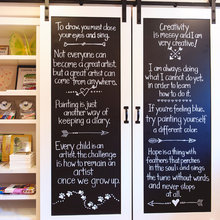 To draw, you must close
your eyes and sing.
Not everyone can
become a great artist,
but a great artist can
come from anywhere.
Painting is just
another way of
keeping a diary.
Every child is an
artist, the challenge
is how to remain an
artist
once we grow up.
Creativity
is messy and I am
very creative!
I am always doing
what I cannot do yet,
in order to learn
how do it.
If you're feeling blue,
try painting yourself
a different color.
Hope is a thing with
feathers that perches
in the soul and sings
the tune without words
and never stops
at all.